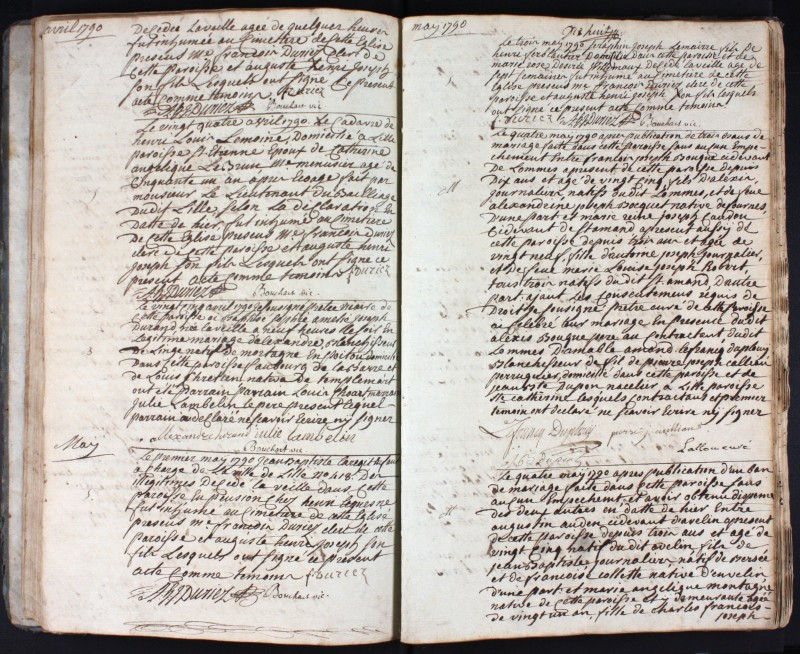 avril 1790
Decedée La veille agée de quelques heures
fut inhumée au Cimetiere de cette Eglise
presens Me francois Duriez clerc de
cette paroisse et auguste henri Joseph
son fils Lesquels ont signé Le present
acte comme temoins f: Duriez
AHJ Duriez
Bouchart vic.
Le vingt quatre avril 1790. Le Cadavre de
henri Louis Lemoine Domicilié a Lille
paroisse St. Etienne Epoux de Catherine
angelique LeBrun Me menuisier agé de
Cinquante un an apres Levage fait par
monsieur Le Lieutenant du Bailliage
Dudit Lille, selon La déclaration En
Datte de hier, fut inhumé au Cimetiere
de cette Eglise, presens Me francois Duriez
clerc de cette paroisse et auguste henri
Joseph son fils Lesquels ont signé ce
present acte comme temoins f: Duriez
AHJ Duriez
Bouchart vic.
Le vingt cinq avril 1790
Cette paroisse Joseph
Durand née La veille a neuf heures du soir En
Legitime mariage d'alexandre
De Linge natif de mortagne En poitou domicilié
Dans cette paroisse fauxbourg de La Barre et
de Louise Chretien native de templemart
Julie Lambelin le pere present Lequel
parrain a declaré ne scavoir Ecrire nij signer
Alexandre durand julie lambelin
Bouchart vic
May
Le premier may 1790 Jean Baptiste
a Charge de La ville de Lille No 418. Des
illegitimes Decedé La veille dans Cette
paroisse En pension Chez henri
fut inhumé au Cimetiere de cette Eglise
presens Me francois Duriez clerc de cette
paroisse et auguste henri Joseph son
fils Lesquels ont signé ce present
acte comme temoins f: Duriez
AHJ Duriez
Bouchart vic.
may 1790
Dix huit
Le trois may 1790 Seraphin Joseph Lemairre fils de
henri Domicilié Dans cette paroisse et de
marie rose Desirée Decedé La veille agé de
sept semaines fut inhumé au Cimetiere de cette
Eglise presens Me francois Duriez clerc de cette
paroisse et auguste henri Joseph son fils Lesquels
ont signé ce present acte comme temoins
f: Duriez AHJ Duriez Bouchart vic.
Le quatre may 1790 apres publication de trois bans de
mariage faite dans cette paroisse sans aucun Empe-
chement Entre francois joseph Bouque cidevant
de Lommes a present de cette paroisse depuis
Dix ans et agé de vingt cinq, fils d'alexis
M
journalier, natifs dudit Lommes, et de feue
alexandrine joseph Bocquet native de fournes,
D'une part; et marie reine joseph Caudou
Cidevant de St amand a present aussy de
cette paroisse depuis trois ans et agée de
vingt neuf, fille d'antoine joseph journalier,
et de feue marie Louise joseph Robert,
tous trois natifs du dit St. amand, D'autre
part; ajant Les Consentemens requis de
Droit Je soussigné Pretre curé de cette paroisse
ai celebré Leur mariage En presence dudit
alexis Bouque pere au Contractant dudit
Lommes D'aimable amand lefrancq Duplouy
Blanchisseur de fil de pierre joseph
perruquier, domicilié dans cette paroisse et de
jean Bte Dupon a Lille paroisse
Ste Catherine lesquels Contractans et premier
temoin ont declaré ne scavoir Ecrire nij signer
Lefrancq Duplouy pierre
Lalloux curé
Le quatre may 1790 apres publication d'un Ban
de mariage faite dans cette paroisse sans
aucun Empechement et avoir obtenu dispense
des deux autres en datte de hier Entre
M
augustin auden cidevant d'avelin a present
de cette paroisse depuis trois ans et agé de
vingt cinq natif du dit avelin fils de
jean Baptiste journalier, natif de Bersée
et de francoise collette native d'envelin
d'une part: et marie angelique montagne
native de cette paroisse et y demeurante agée
de vingt un an, fille de charles francois-
joseph-